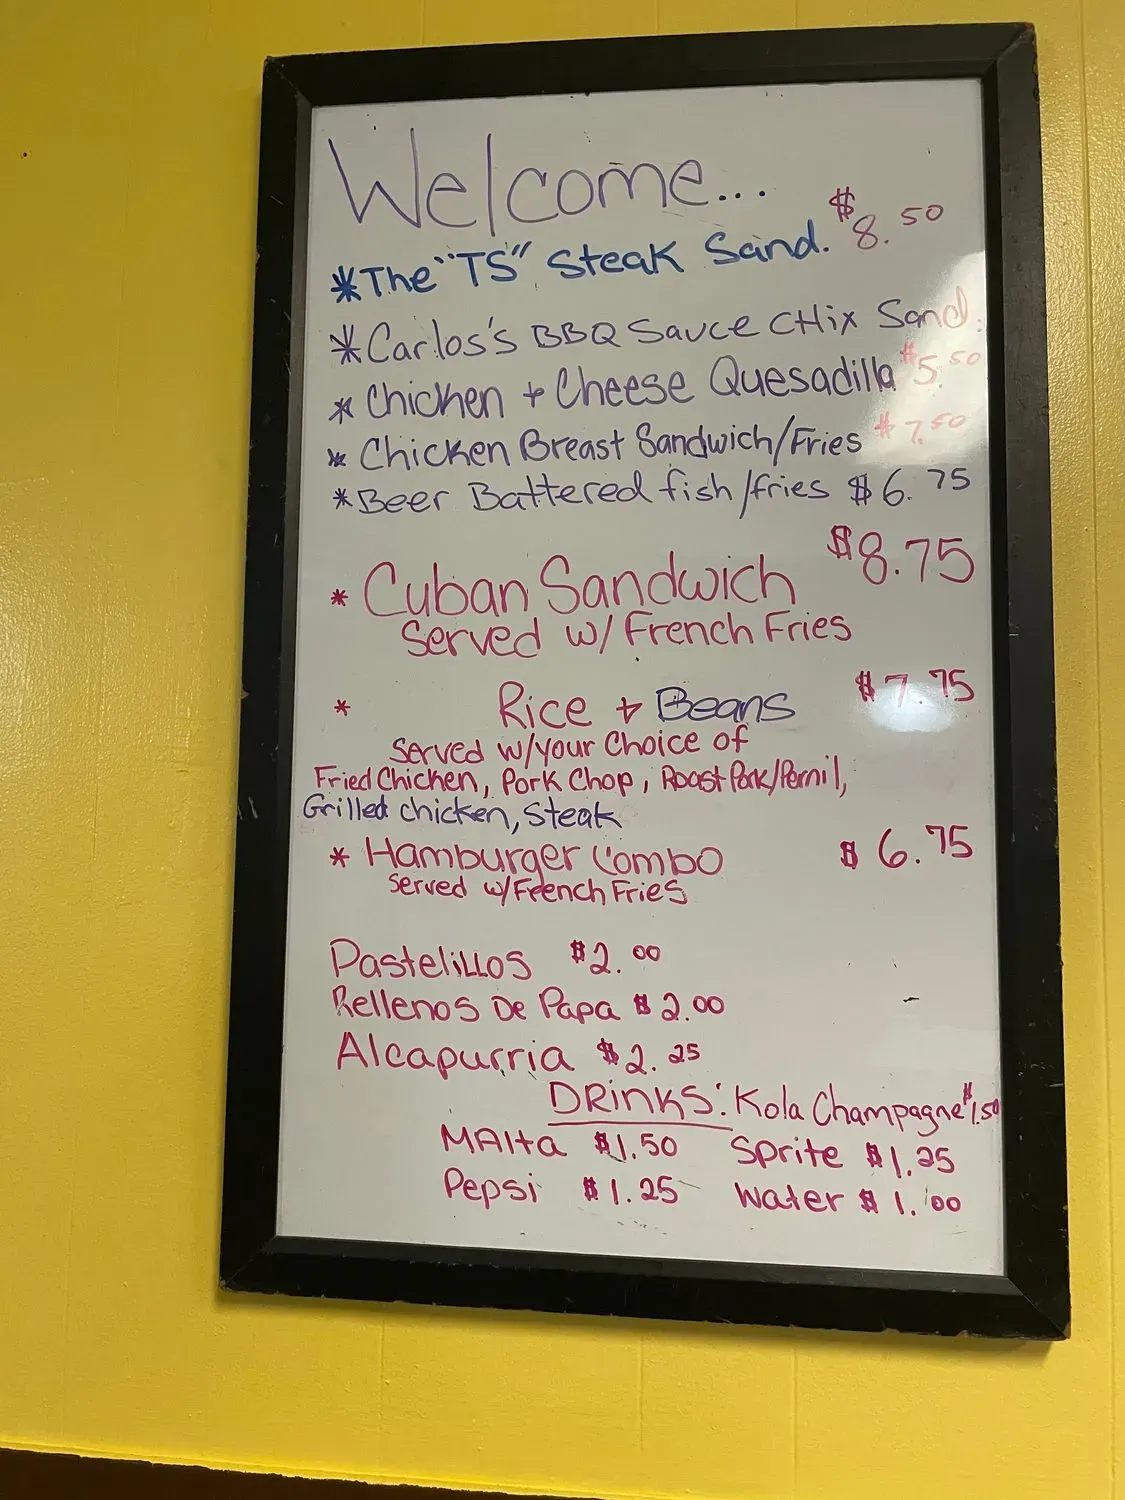 Welcome...
*The "TS" Steak Sand. $8.50
*Carlos's BBQ Sauce CHix Sand.
* Chicken + Cheese Quesadilla $5.50
* Chicken Breast Sandwich/Fries $7.50
*Beer Battered fish/fries $6.75
* Cuban Sandwich $8.75
Served w/ French Fries
* Rice + Beans $7.75
Served w/your Choice of
Fried Chicken, Pork Chop, Roast Pork/Pernil,
Grilled chicken, Steak
* Hamburger Combo $6.75
Served w/French Fries
Pastelillos $2.00
Rellenos De Papa $2.00
Alcapurria $2.25
DRinks: Kola Champagne $1.50
MAlta $1.50 Sprite $1.25
Pepsi $1.25 Water $1.00